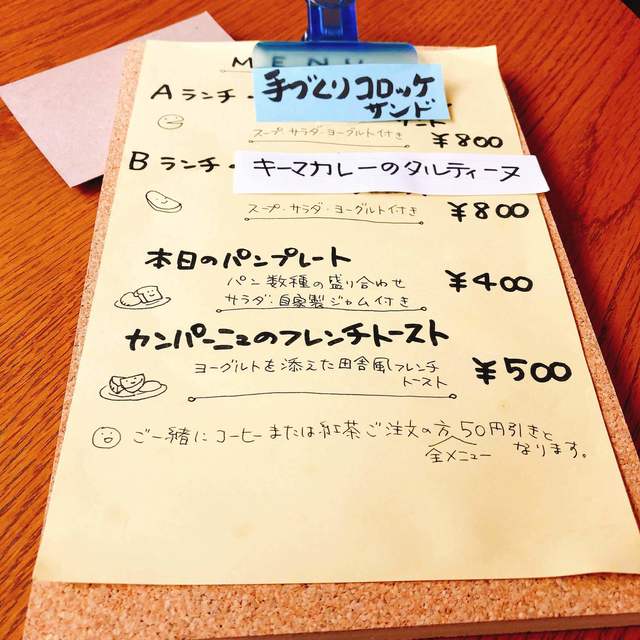 MENU
Aランチ・
手づくりコロッケ
サンド
スープ・サラダ・ヨーグルト付き
¥800
Bランチ・
キーマカレーのタルティーヌ
スープ・サラダ・ヨーグルト付き
¥800
本日のパンプレート
パン数種の盛り合わせ
サラダ・自家製ジャム付き
¥400
カンパーニュのフレンチトースト
ヨーグルトを添えた田舎風フレンチ
トースト
¥500
ご一緒にコーヒーまたは紅茶ご注文の方 50円引きと
全メニュー
なります。